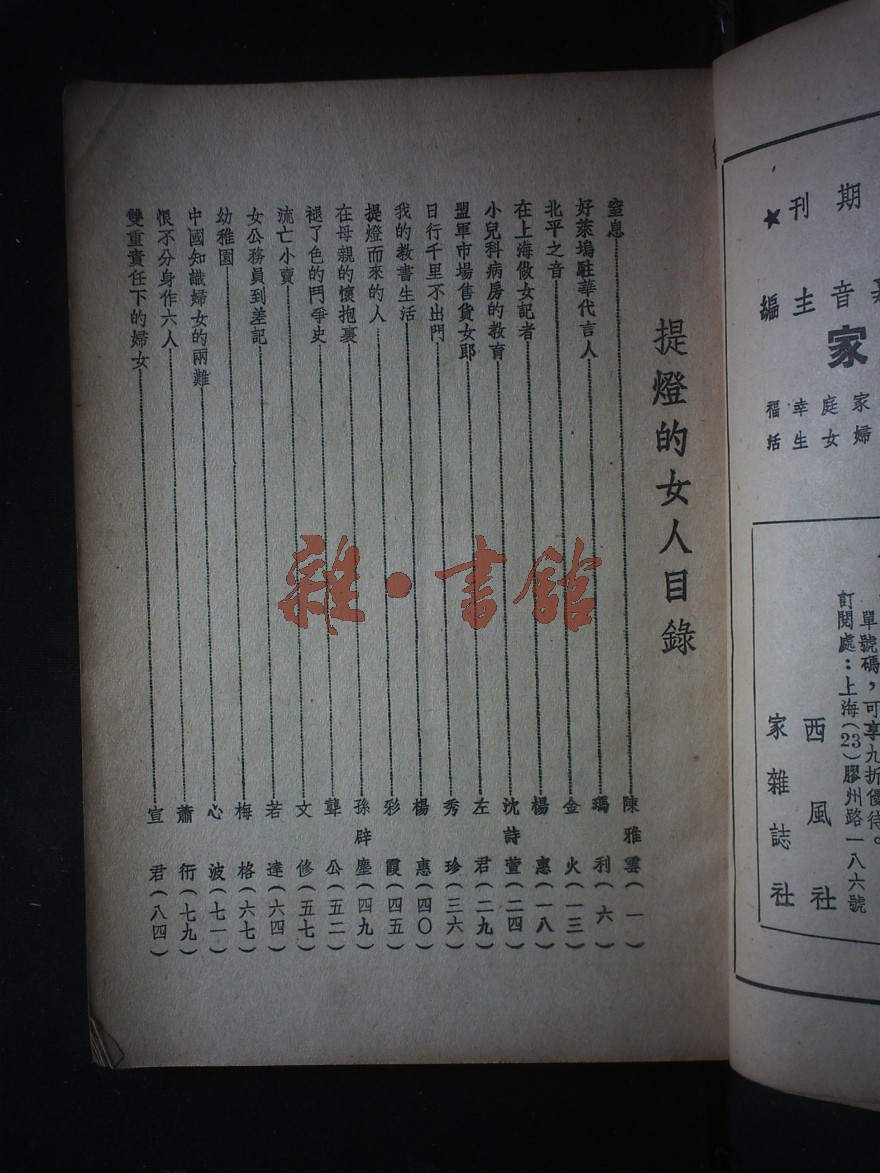 期刊★
音主編
家
家庭幸福
婦女生活
單號碼，可享九折優待。
訂閱處：上海(23)膠州路一八六號
西風社
家雜誌社
提燈的女人目錄
窒息 陳雅雲(一)
好萊塢駐華代言人 瑪利(六)
北平之音 金火(一三)
在上海做女記者 楊惠(一八)
小兒科病房的教育 沈詩萱(二四)
盟軍市場售貨女郎 左君(二九)
日行千里不出門 秀珍(三六)
我的教書生活 楊惠(四〇)
提燈而來的人 彩霞(四五)
在母親的懷抱裏 孫辟塵(四九)
褪了色的鬥爭史 龔公(五二)
流亡小賣 文修(五七)
女公務員到差記 若達(六四)
幼稚園 梅格(六七)
中國知識婦女的兩難 心波(七一)
恨不分身作六人 蕭衍(七九)
雙重責任下的婦女 宣君(八四)
雜·書館